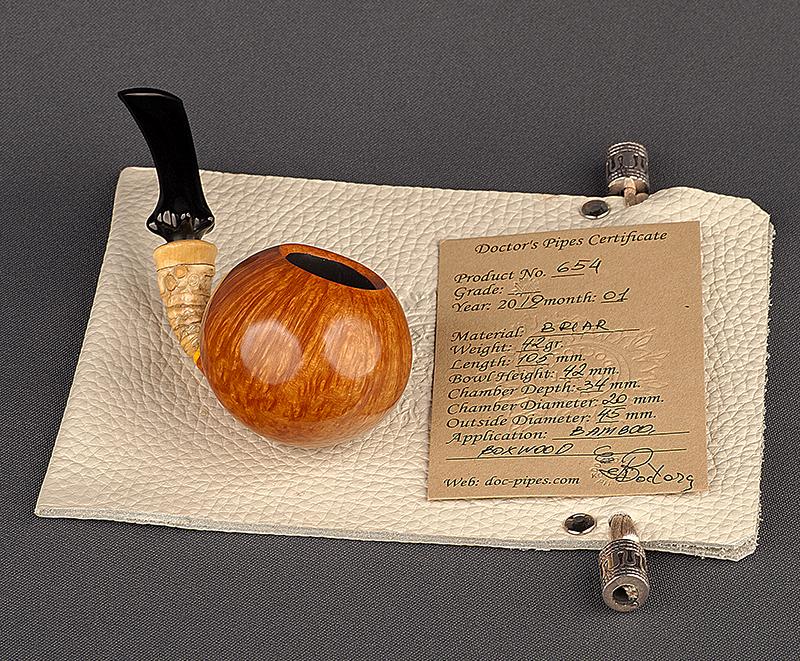 Doctor's Pipes Certificate
Product No. 654
Grade:
Year: 2019 month: 01
Material: BRIAR
Weight: 42 gr.
Length: 105 mm.
Bowl Height: 42 mm.
Chamber Depth: 34 mm.
Chamber Diameter: 20 mm.
Outside Diameter: 45 mm.
Application: BAMBOO
BOXWOOD
Web: doc-pipes.com